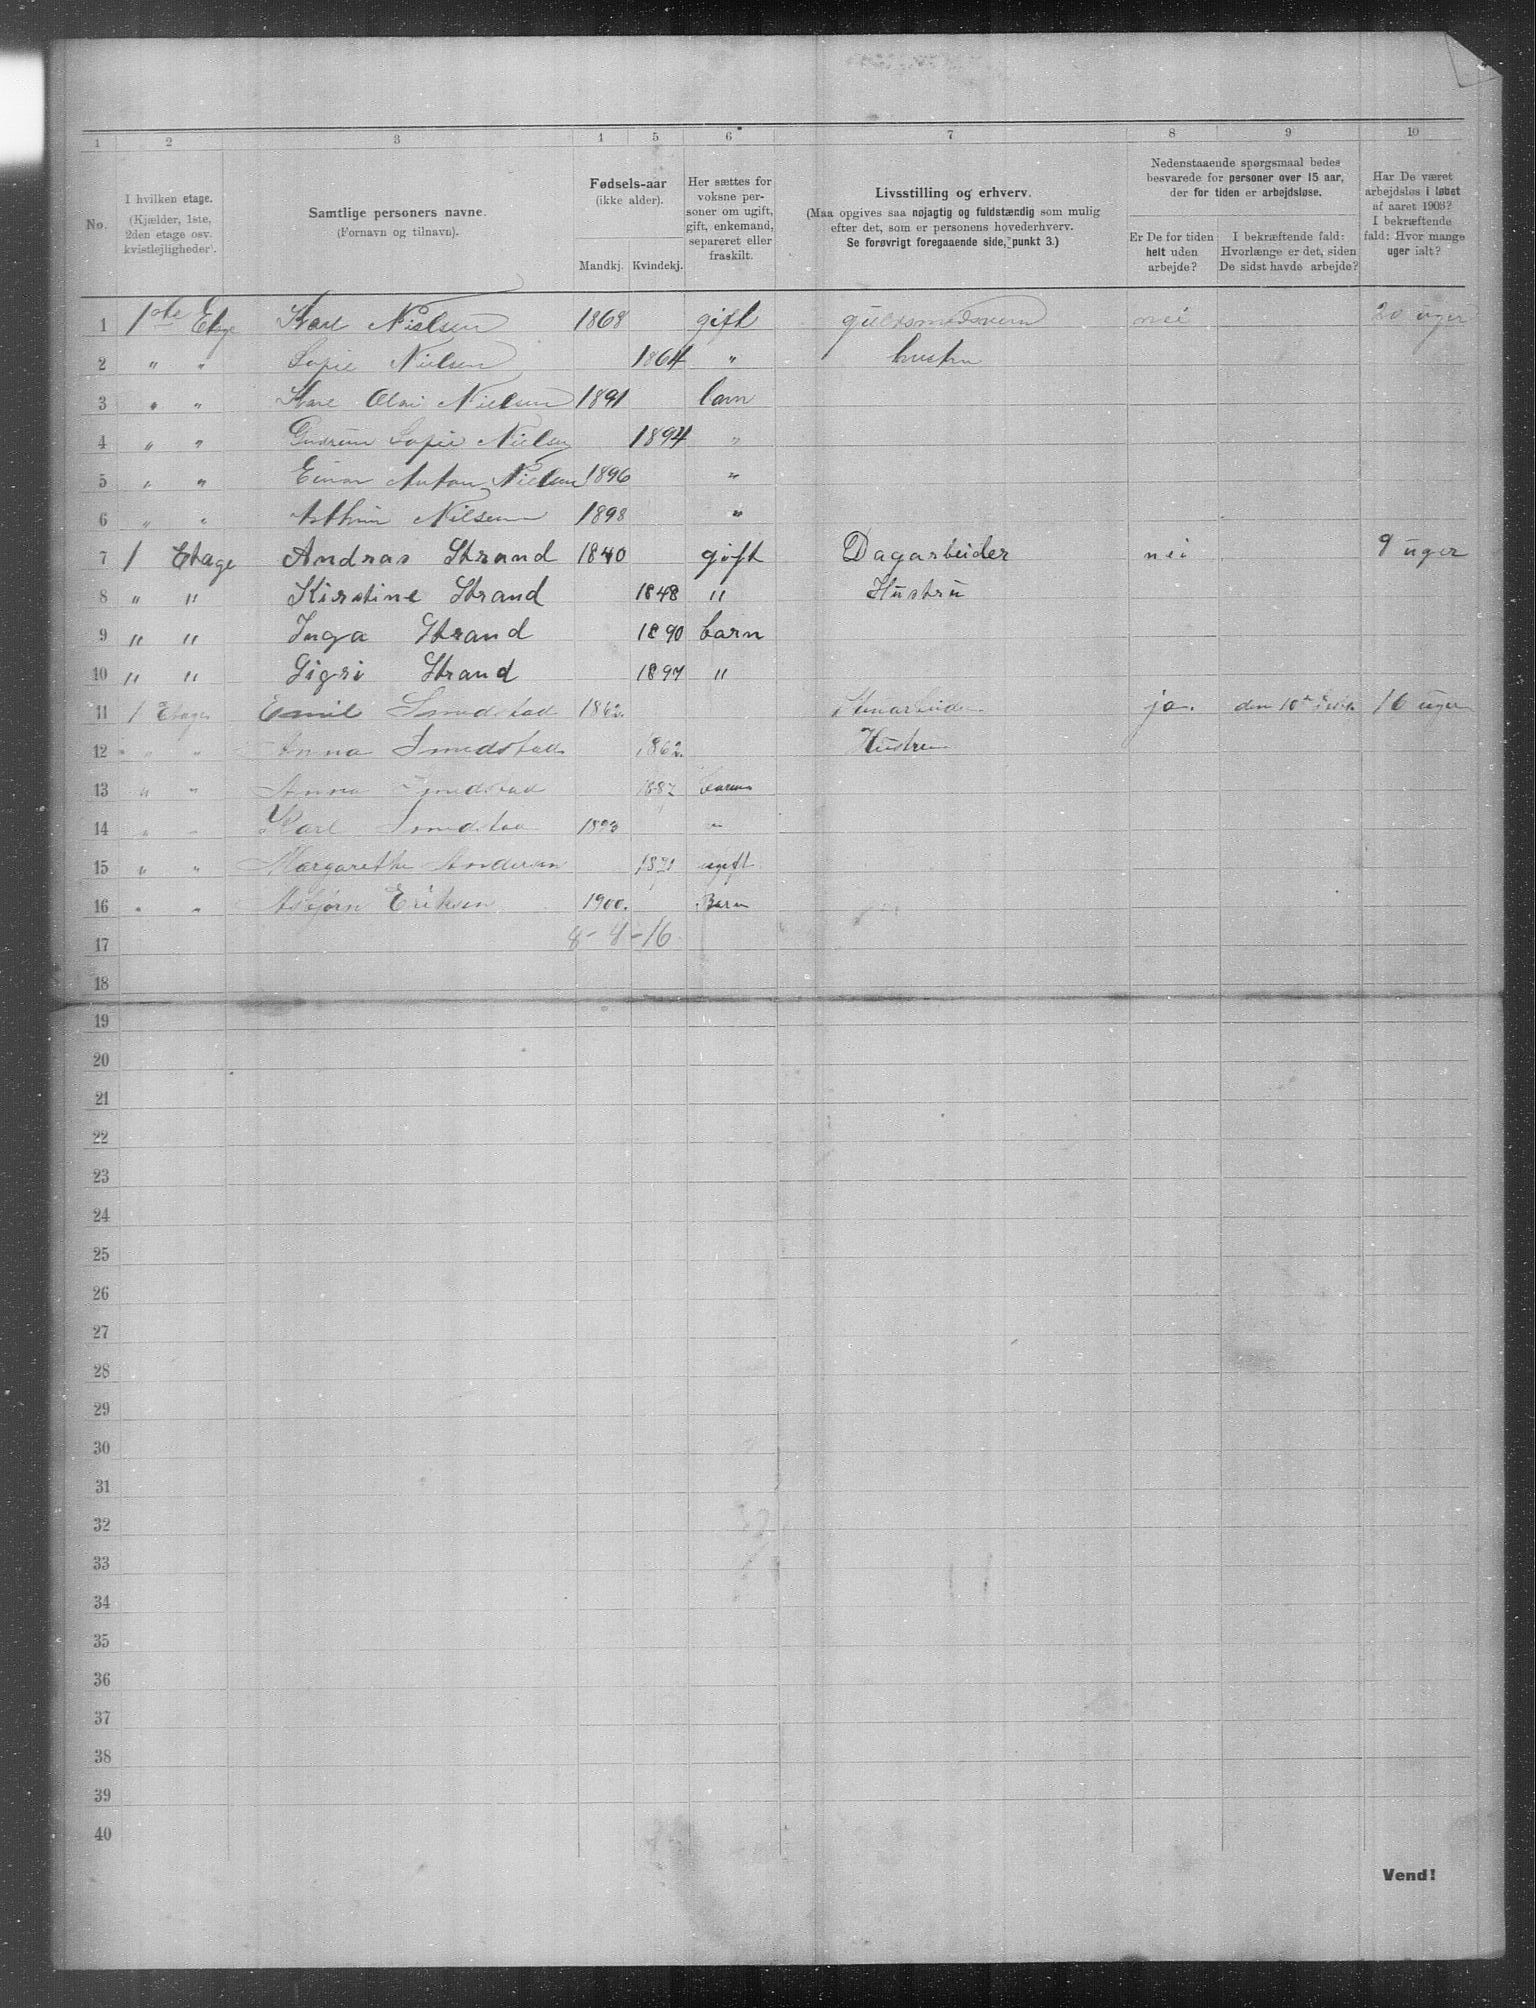 1 2 3 4 5 6 7 8 9 10
No.
I hvilken etage.
(Kjælder, 1ste,
2den etage osv.
kvistlejligheder).
Samtlige personers navne.
(Fornavn og tilnavn).
Fødsels-aar
(ikke alder).
Mandkj. Kvindekj.
Her sættes for
voksne per-
soner om ugift,
gift, enkemand,
separeret eller
fraskilt.
Livsstilling og erhverv.
(Maa opgives saa nøjagtig og fuldstændig som mulig
efter det, som er personens hovederhverv.
Se forøvrigt foregaaende side, punkt 3.)
Nedenstaaende spørgsmaal bedes
besvarede for personer over 15 aar,
der for tiden er arbejdsløse.
Er De for tiden
helt uden
arbejde?
I bekræftende fald:
Hvorlænge er det, siden
De sidst havde arbejde?
Har De været
arbejdsløs i løbet
af aaret 1903?
I bekræftende
fald: Hvor mange
uger ialt?
1 1ste Etage Karl Nielsen 1868 gift nei 20 uger
2 " " Sofie Nielsen 1864 " hustru
3 " " Karl Olai Nielsen 1891 barn
4 " " Gudrun Sofie Nielsen 1894 "
5 " " Einar Anton Nielsen 1896 "
6 " " Arthur Nilsen 1898 "
7 1 Etage Andras Strand 1840 gift Dagarbeider nei 9 uger
8 " " Kirstine Strand 1848 " Hustru
9 " " Inga Strand 1890 barn
10 " " Sigri Strand 1897 "
11 1 Etage Emil Smedstad 1862 Stenarbeider ja. den 10de 16 uger
12 " " Anna Smedstad 1862 Hustru
13 " " Anna Smedstad 1887 barn
14 " " Karl Smedstad 1893 "
15 " " Margarethe Andersen 1871 ugift
16 " " Asbjørn Eriksen 1900. Barn
17 8 - 8 - 16
18
19
20
21
22
23
24
25
26
27
28
29
30
31
32
33
34
35
36
37
38
39
40
Vend!